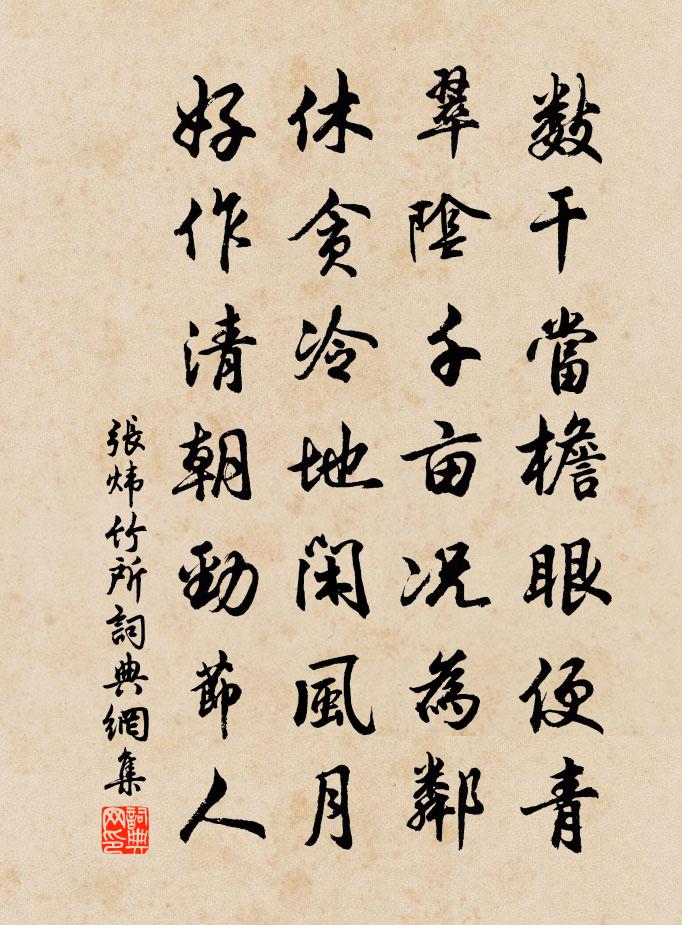 數干當檐眼便青
翠陰千亩况為鄰
休貪冷地閑風月
好作清朝勁節人
張煒竹所詞典網集
詞典網印